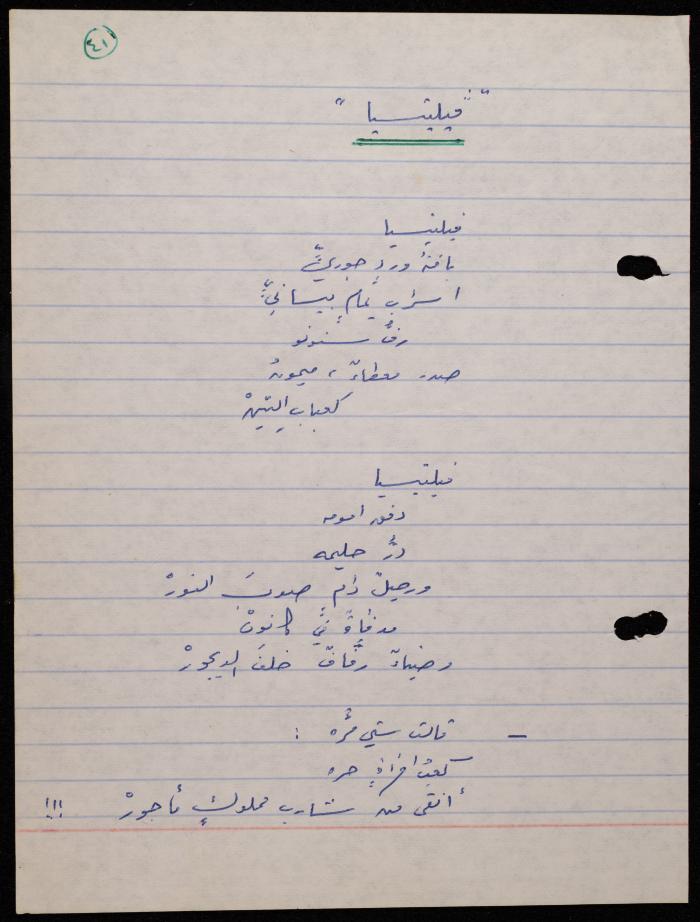 ٤١
"فيليتسيا"
فيليتسيا
باقةُ وردٍ جوريٍّ
اسرابُ يمامٍ بيسانيٍّ
رفُّ سنونو
صدر معطاءٌ ، ميمونهْ
كعباب اليمّْ
فيليتسيا
دفق امومه
درُّ حليمه
ورحيلٌ دام صوبَ النورْ
مدفأةٌ في كانونْ
وضياءٌ رفّافٌ خلفَ الديجورْ
– قالت ستي مُرّه :
كعبُ افرأةٍ حره
أنقى من شارب مملوكٍ مأجورْ !!!